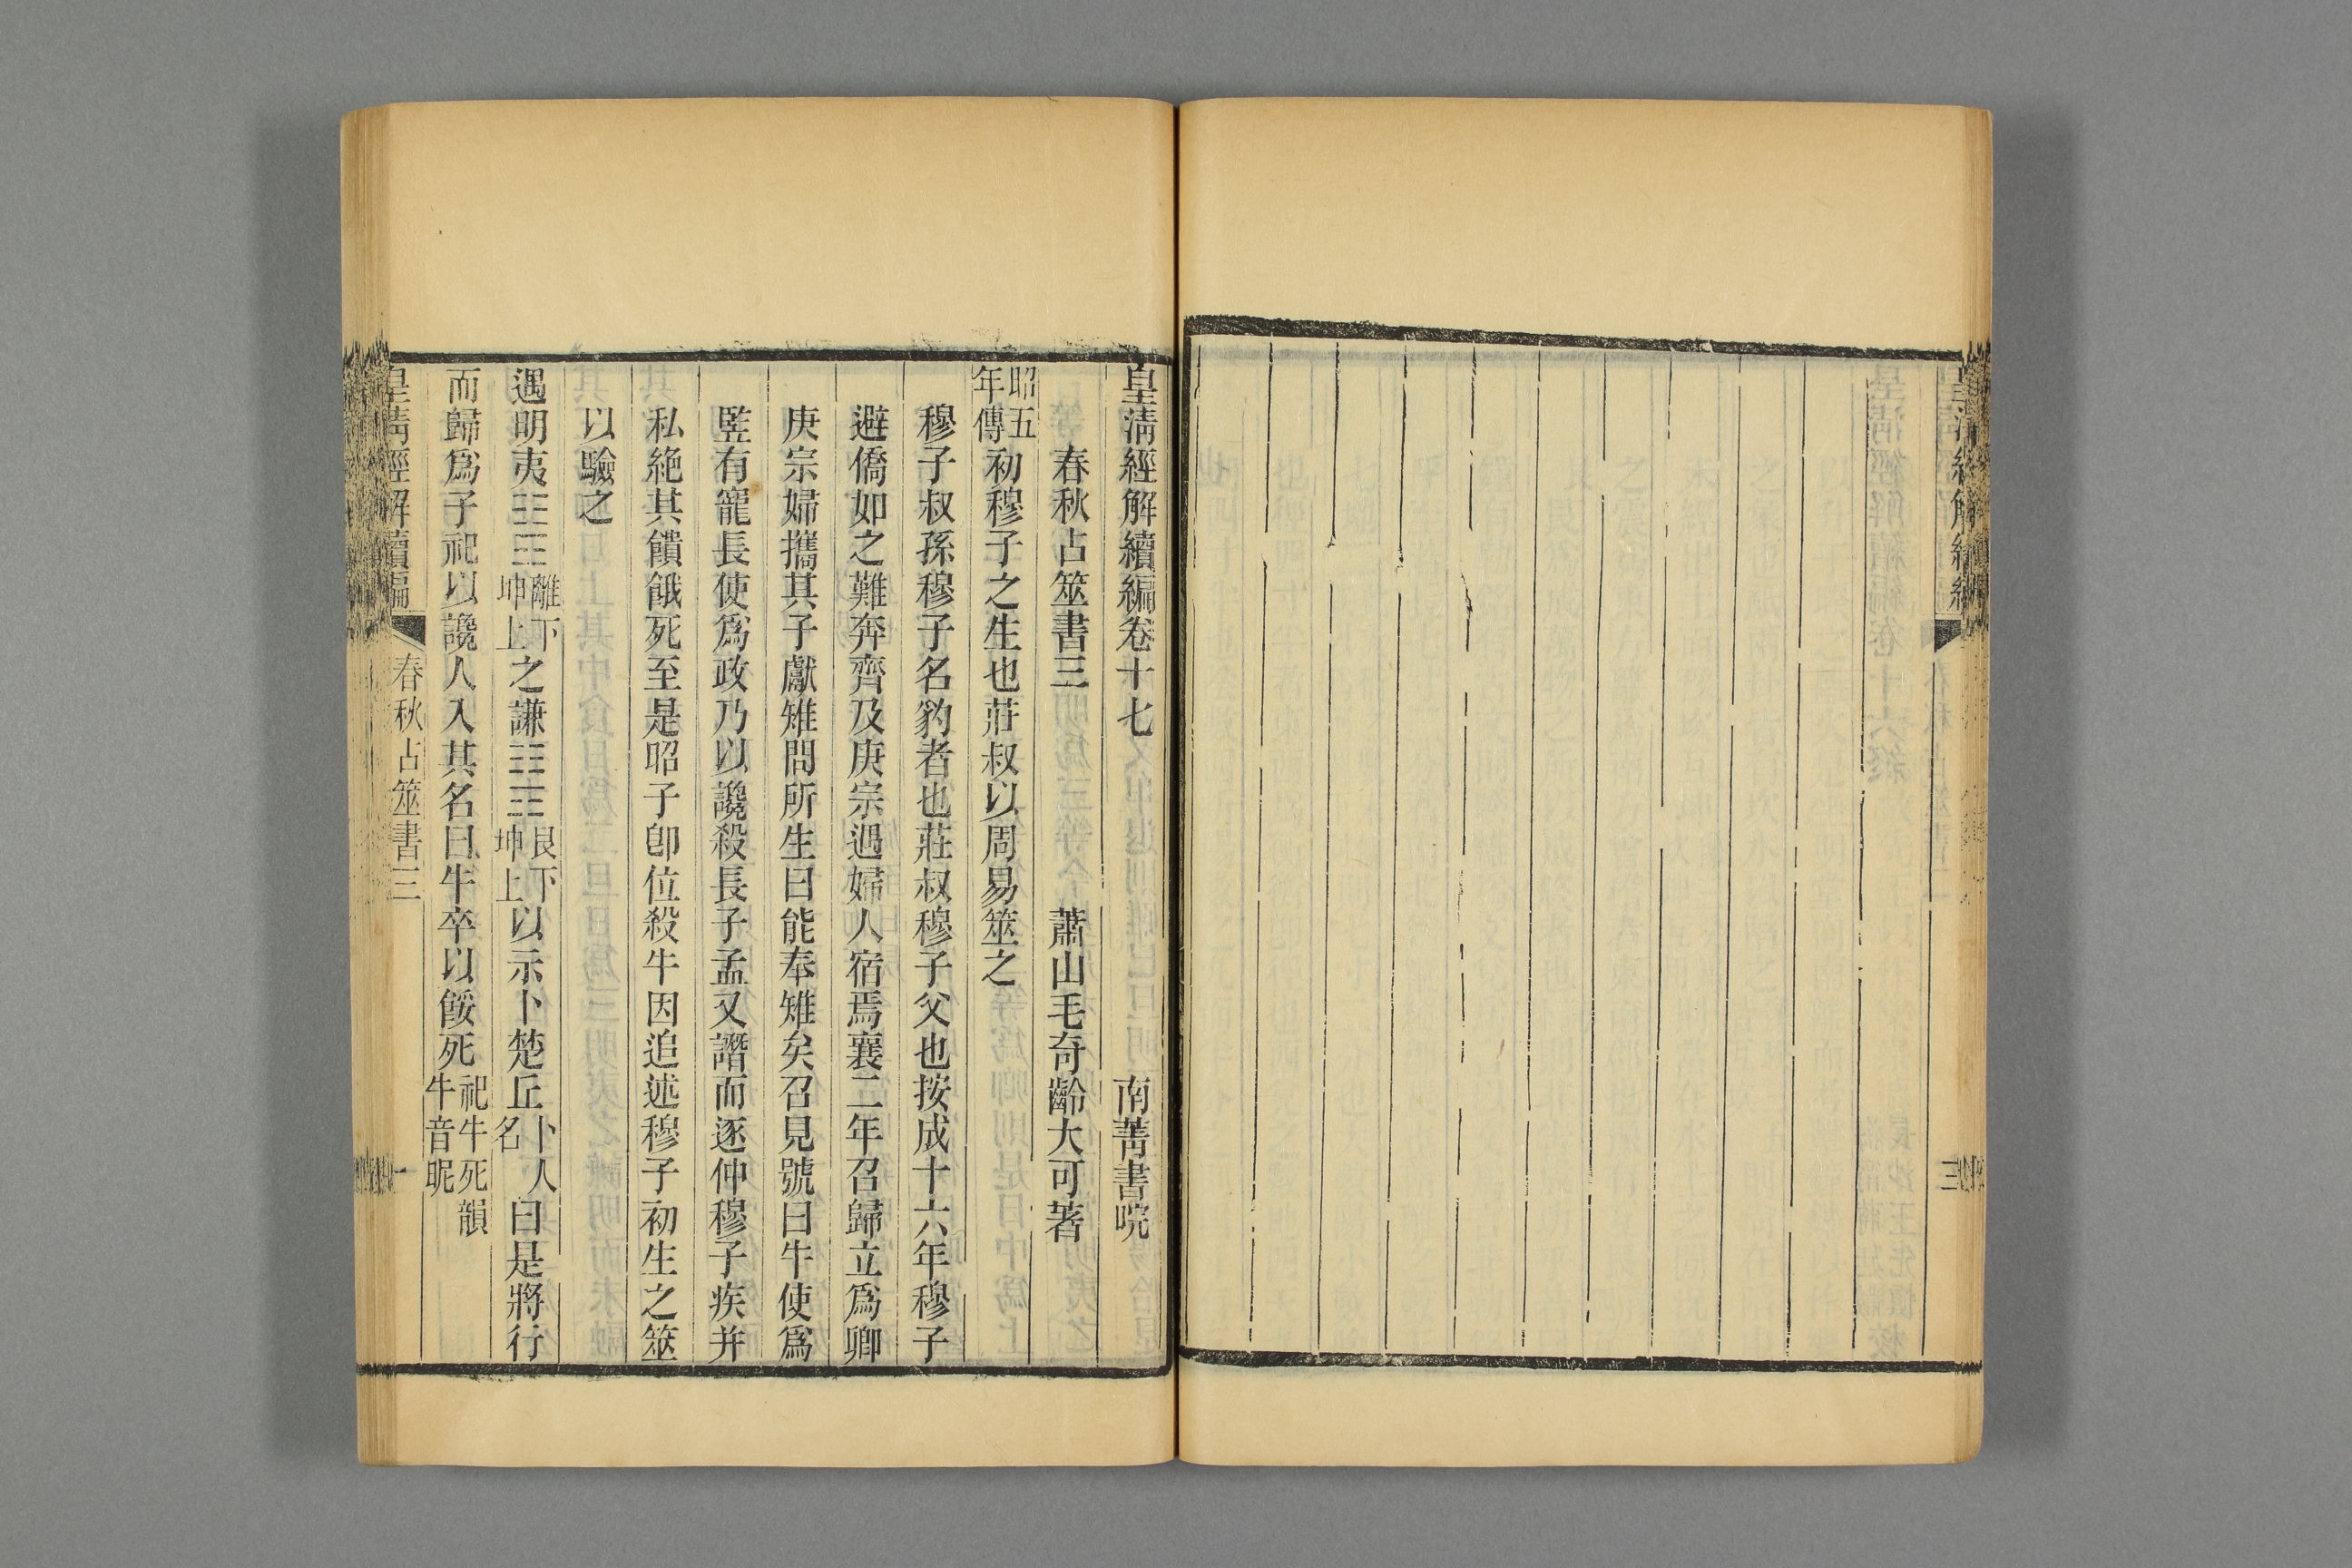 皇清經解續編卷十七　南菁書院
春秋占筮書三　蕭山毛奇齡大可著
昭五年傳初穆子之生也莊叔以周易筮之
穆子叔孫穆子名豹者也莊叔穆子父也按成十六年穆子
避僑如之難奔齊及庚宗遇婦人宿焉襄二年召歸立爲卿
庚宗婦攜其子獻雉問所生曰能奉雉矣召見號曰牛使爲
豎有寵長使爲政乃以讒殺長子孟又譖而逐仲穆子疾并
私絕其饋餓死至是昭子卽位殺牛因追述穆子初生之筮
以驗之
遇明夷☲☷離下坤上之謙☶☷艮下坤上以示卜楚丘卜人名曰是將行
而歸爲子祀以讒人入其名曰牛卒以餒死祀牛死韻牛音昵
皇清經解續編　春秋占筮書三　一